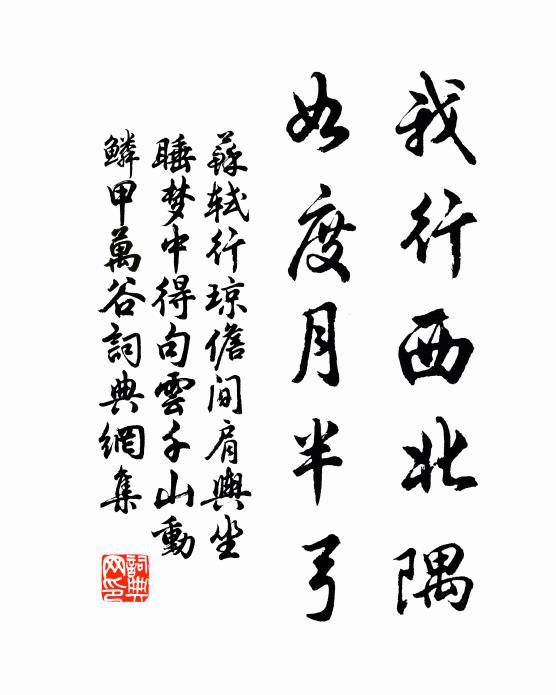 我行西北隅
如度月半弓
蘇軾行琼儋间肩輿坐
睡梦中得句雲千山動
鱗甲萬谷詞典網集
詞典
网印